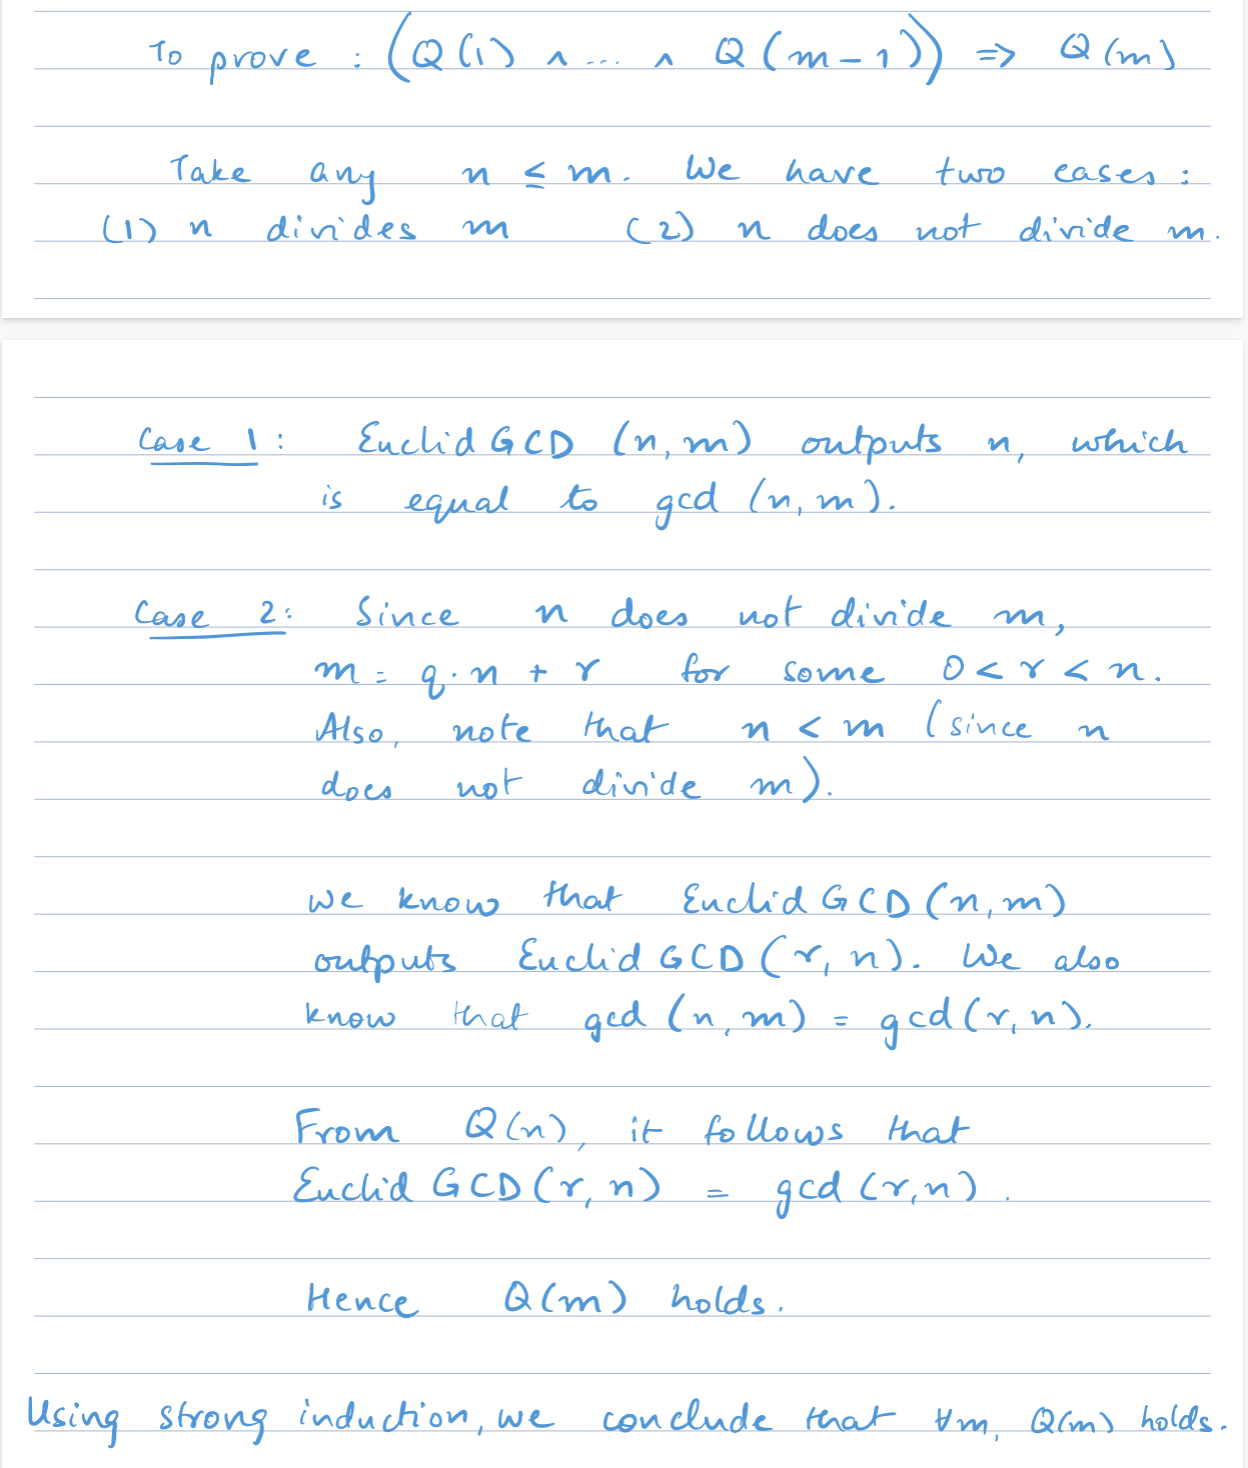 To prove : (Q(1) ∧ ... ∧ Q(m-1)) ⇒ Q(m)
Take any n ≤ m. We have two cases :
(1) n divides m (2) n does not divide m.
Case 1 : EuclidGCD (n, m) outputs n, which
is equal to gcd (n, m).
Case 2 : Since n does not divide m,
m = q · n + r for some 0 < r < n.
Also, note that n < m (since n
does not divide m).
We know that EuclidGCD (n, m)
outputs EuclidGCD (r, n). We also
know that gcd (n, m) = gcd (r, n).
From Q(n), it follows that
EuclidGCD (r, n) = gcd (r, n) .
Hence Q(m) holds.
Using strong induction, we conclude that ∀m, Q(m) holds.